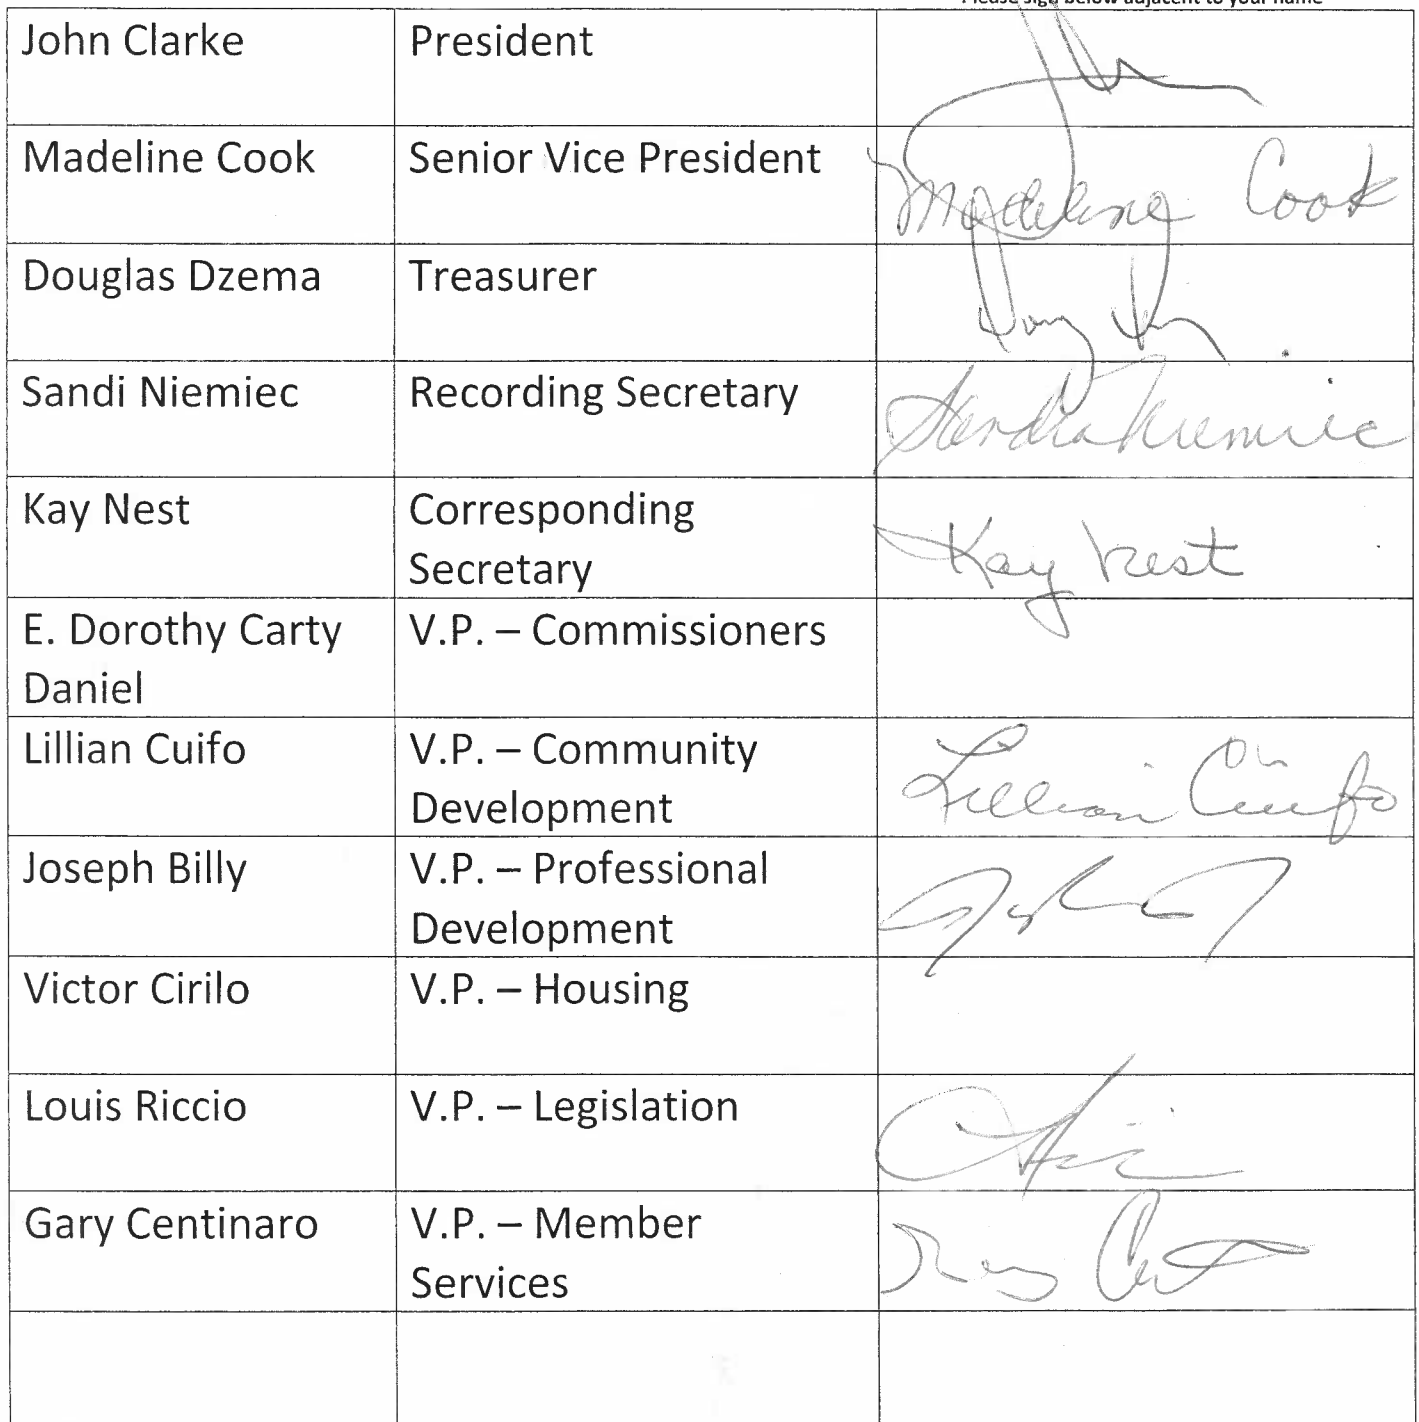 Please sign below adjacent to your name
John Clarke President
Madeline Cook Senior Vice President Madeline Cook
Douglas Dzema Treasurer
Sandi Niemiec Recording Secretary Sandra Niemiec
Kay Nest Corresponding
Secretary Kay Nest
E. Dorothy Carty V.P. – Commissioners
Daniel
Lillian Cuifo V.P. – Community
Development Lillian Cuifo
Joseph Billy V.P. – Professional
Development
Victor Cirilo V.P. – Housing
Louis Riccio V.P. – Legislation
Gary Centinaro V.P. – Member
Services